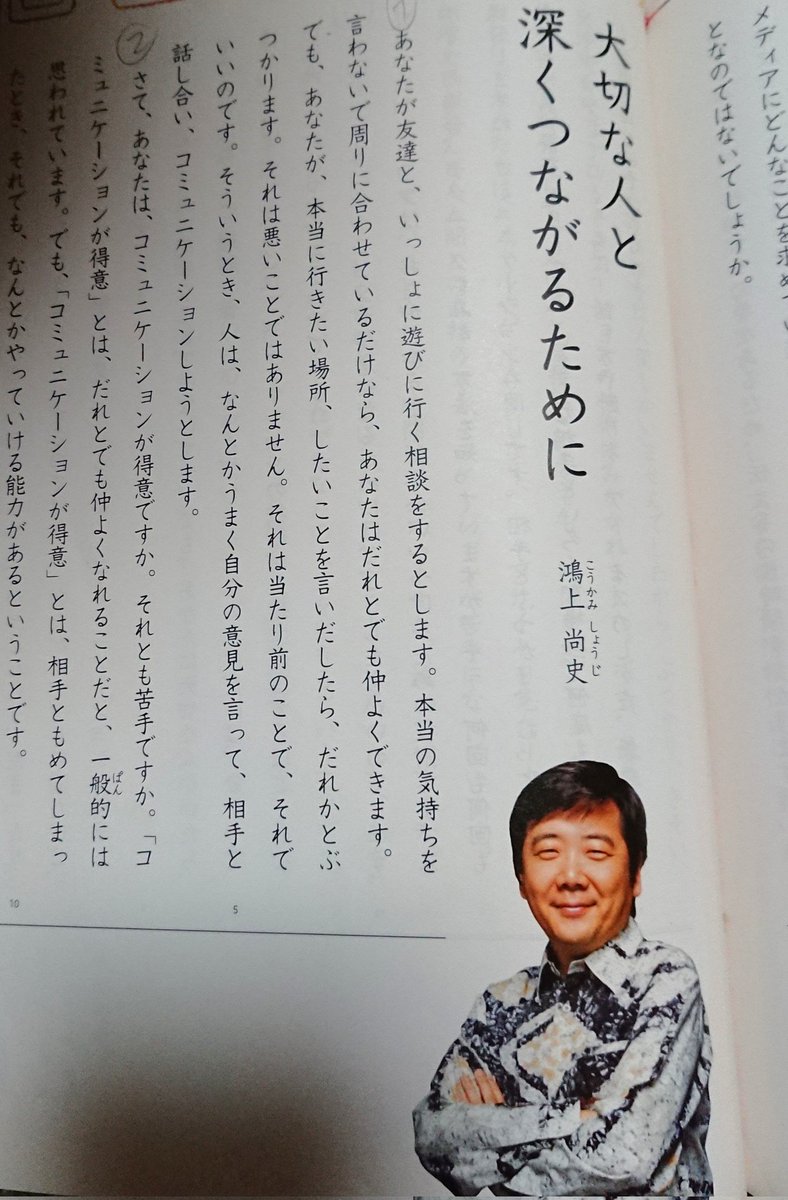 メディアにどんなことを求めてい
となのではないでしょうか。
大切な人と
深くつながるために
鴻上 尚史
こうかみ しょうじ
①
あなたが友達と、いっしょに遊びに行く相談をするとします。本当の気持ちを
言わないで周りに合わせているだけなら、あなたはだれとでも仲よくできます。
でも、あなたが、本当に行きたい場所、したいことを言いだしたら、だれかとぶ
つかります。それは悪いことではありません。それは当たり前のことで、それで
いいのです。そういうとき、人は、なんとかうまく自分の意見を言って、相手と
話し合い、コミュニケーションしようとします。
②
さて、あなたは、コミュニケーションが得意ですか。それとも苦手ですか。「コ
ミュニケーションが得意」とは、だれとでも仲よくなれることだと、一般的には
ぱん
思われています。でも、「コミュニケーションが得意」とは、相手ともめてしまっ
たとき、それでも、なんとかやっていける能力があるということです。
5
10